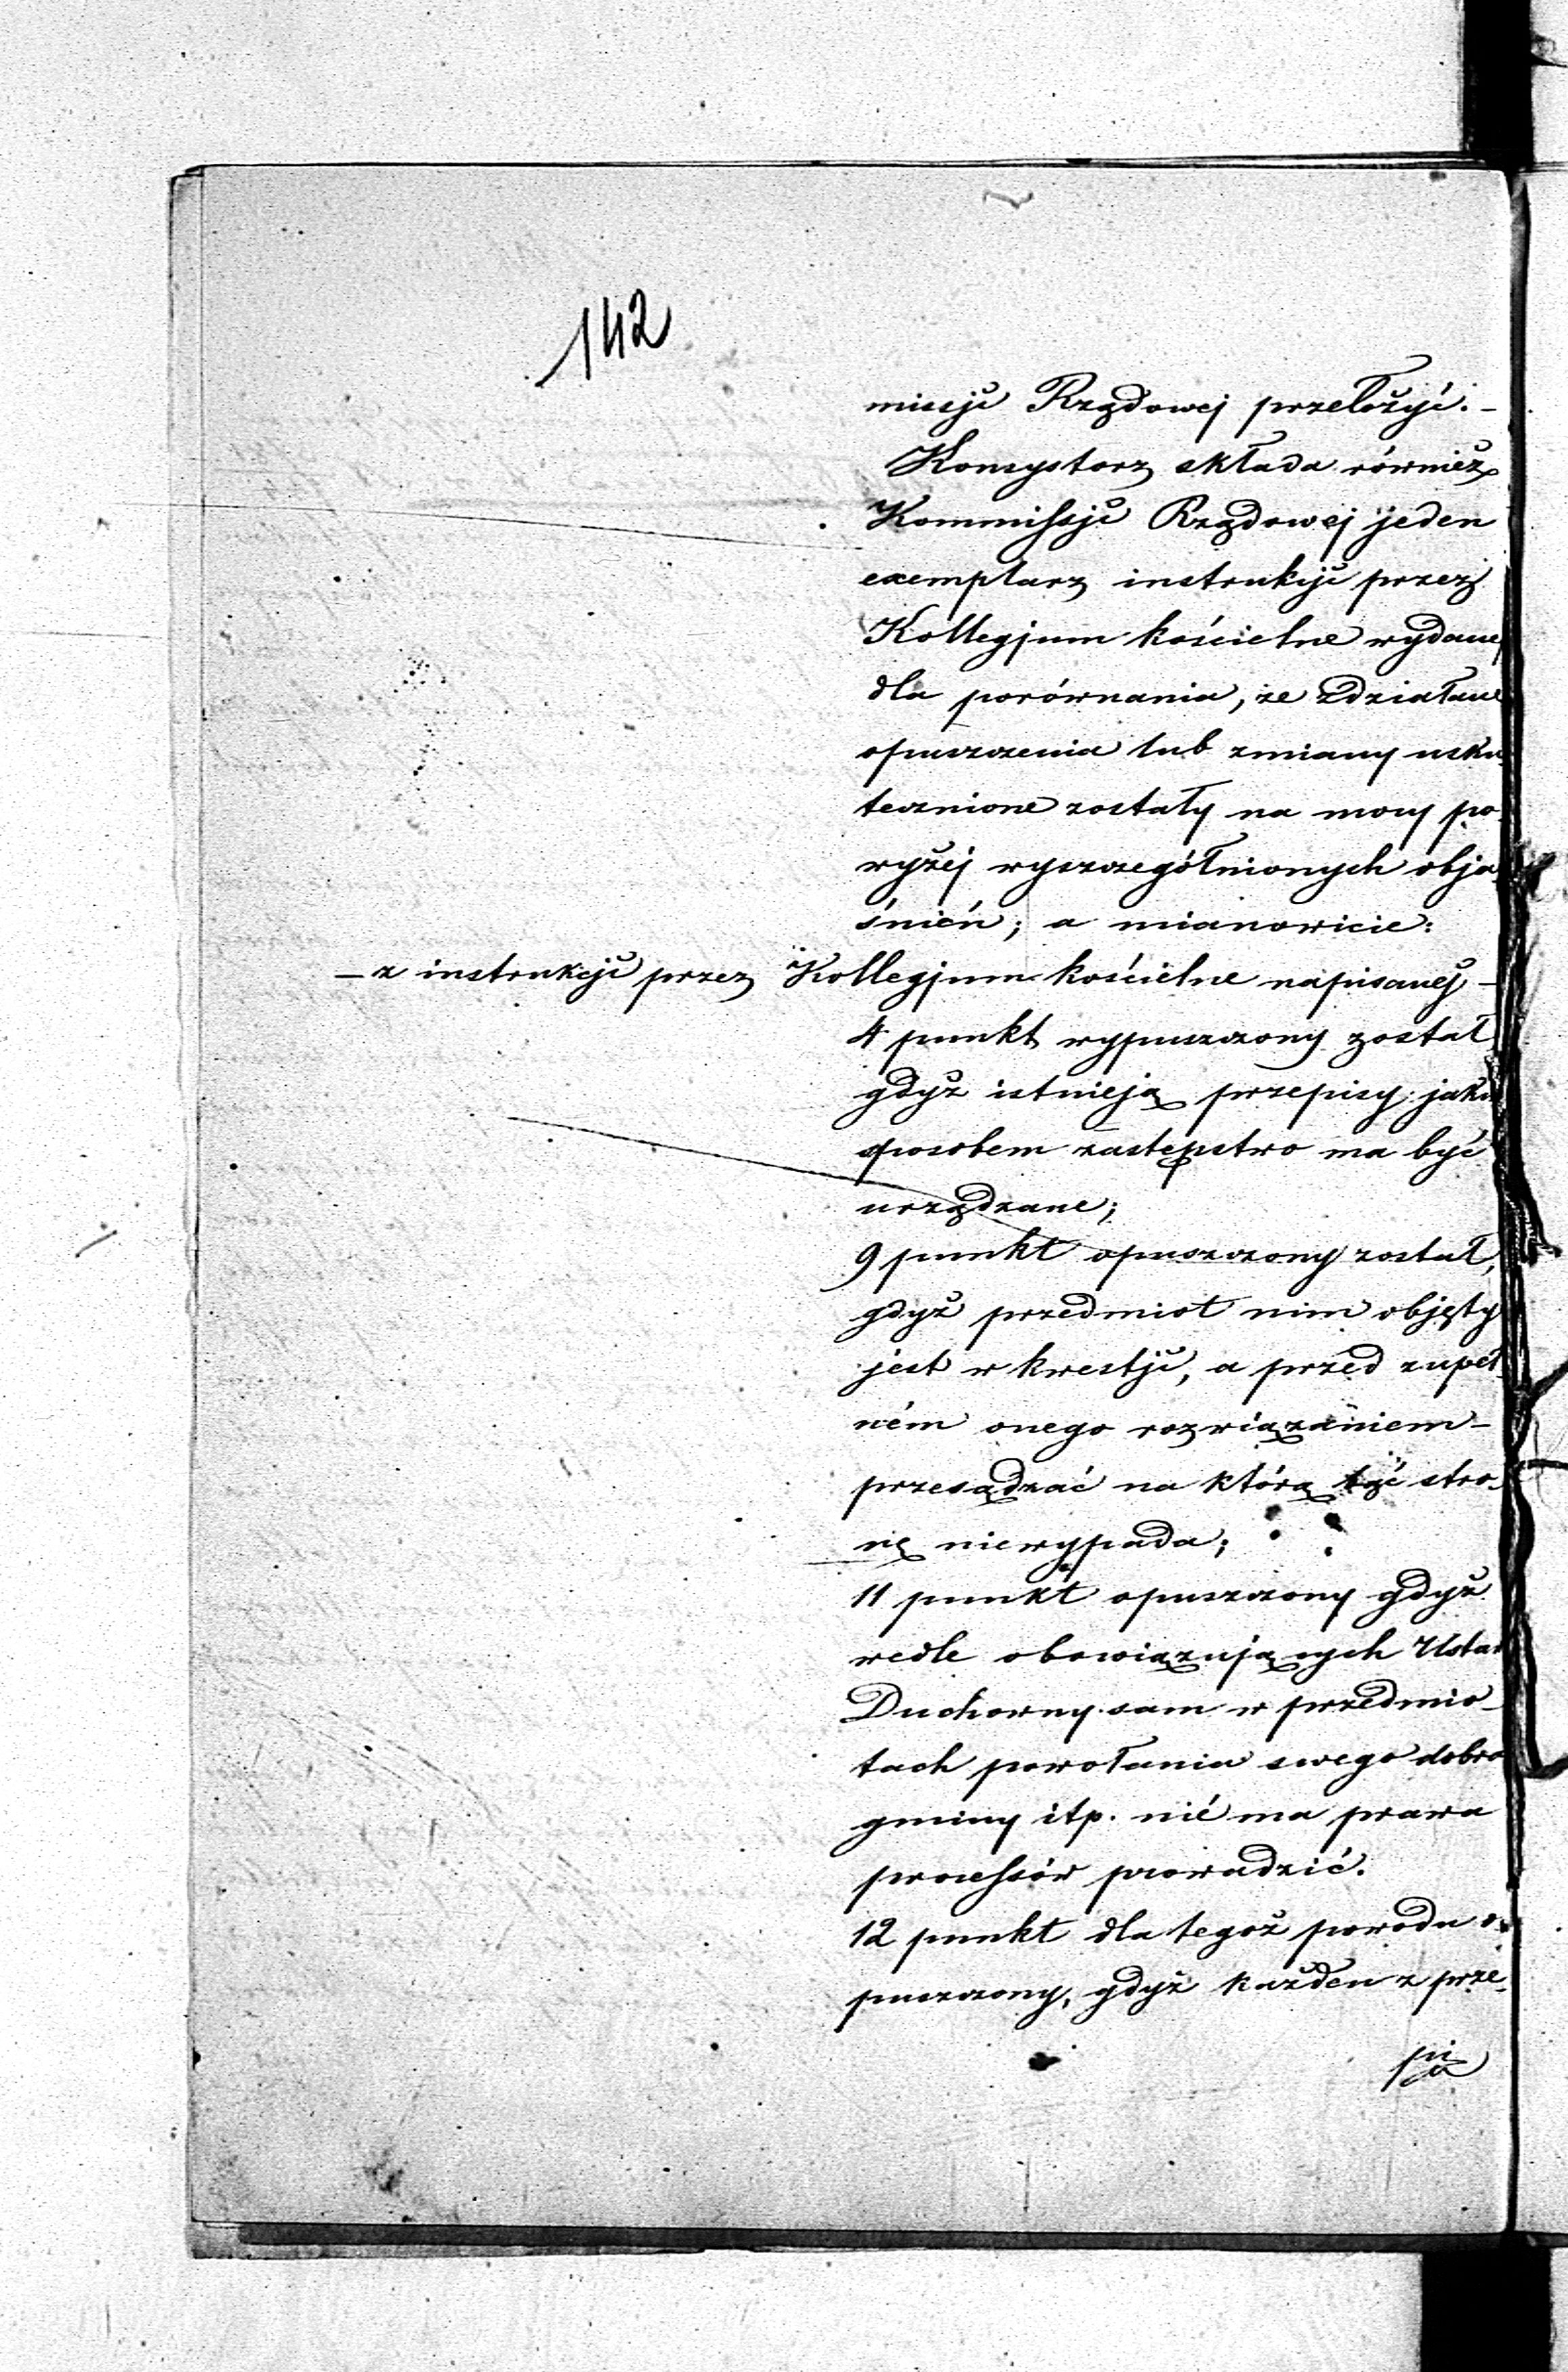 142
missji Rządowej przełożyć. –
Konsystorz składa również
Kommissji Rządowej jeden
exemplarz instrukcji przez
Kollegjum kościelne wydanej
dla porównania, że zdziałane
opuszczenia lub zmiany usku-
tecznione zostały na mocy po-
wyżej wyszczegółnionych obja-
śnień; a mianowicie:
– z instrukcji przez Kollegjum kościelne napisanej –
4 punkt wypuszczony został,
gdyż istnieją przepisy jakim
sposobem zastępstwo ma być
urządzane;
9 punkt opuszczony został,
gdyż przedmiot nim objęty
jest w kwestji, a przed zupeł-
ném onego rozwiązaniem –
przesądzać na którą bąć stro-
nę niewypada;
11 punkt opuszczony gdyż
wedle obowiązujących Ustaw
Duchowny sam w przedmio-
tach powołania swego dobra
gminy itp. nié ma prawa
processów prowadzić.
12 punkt dla tegoż powodu o-
puszczony, gdyż każden z prze-